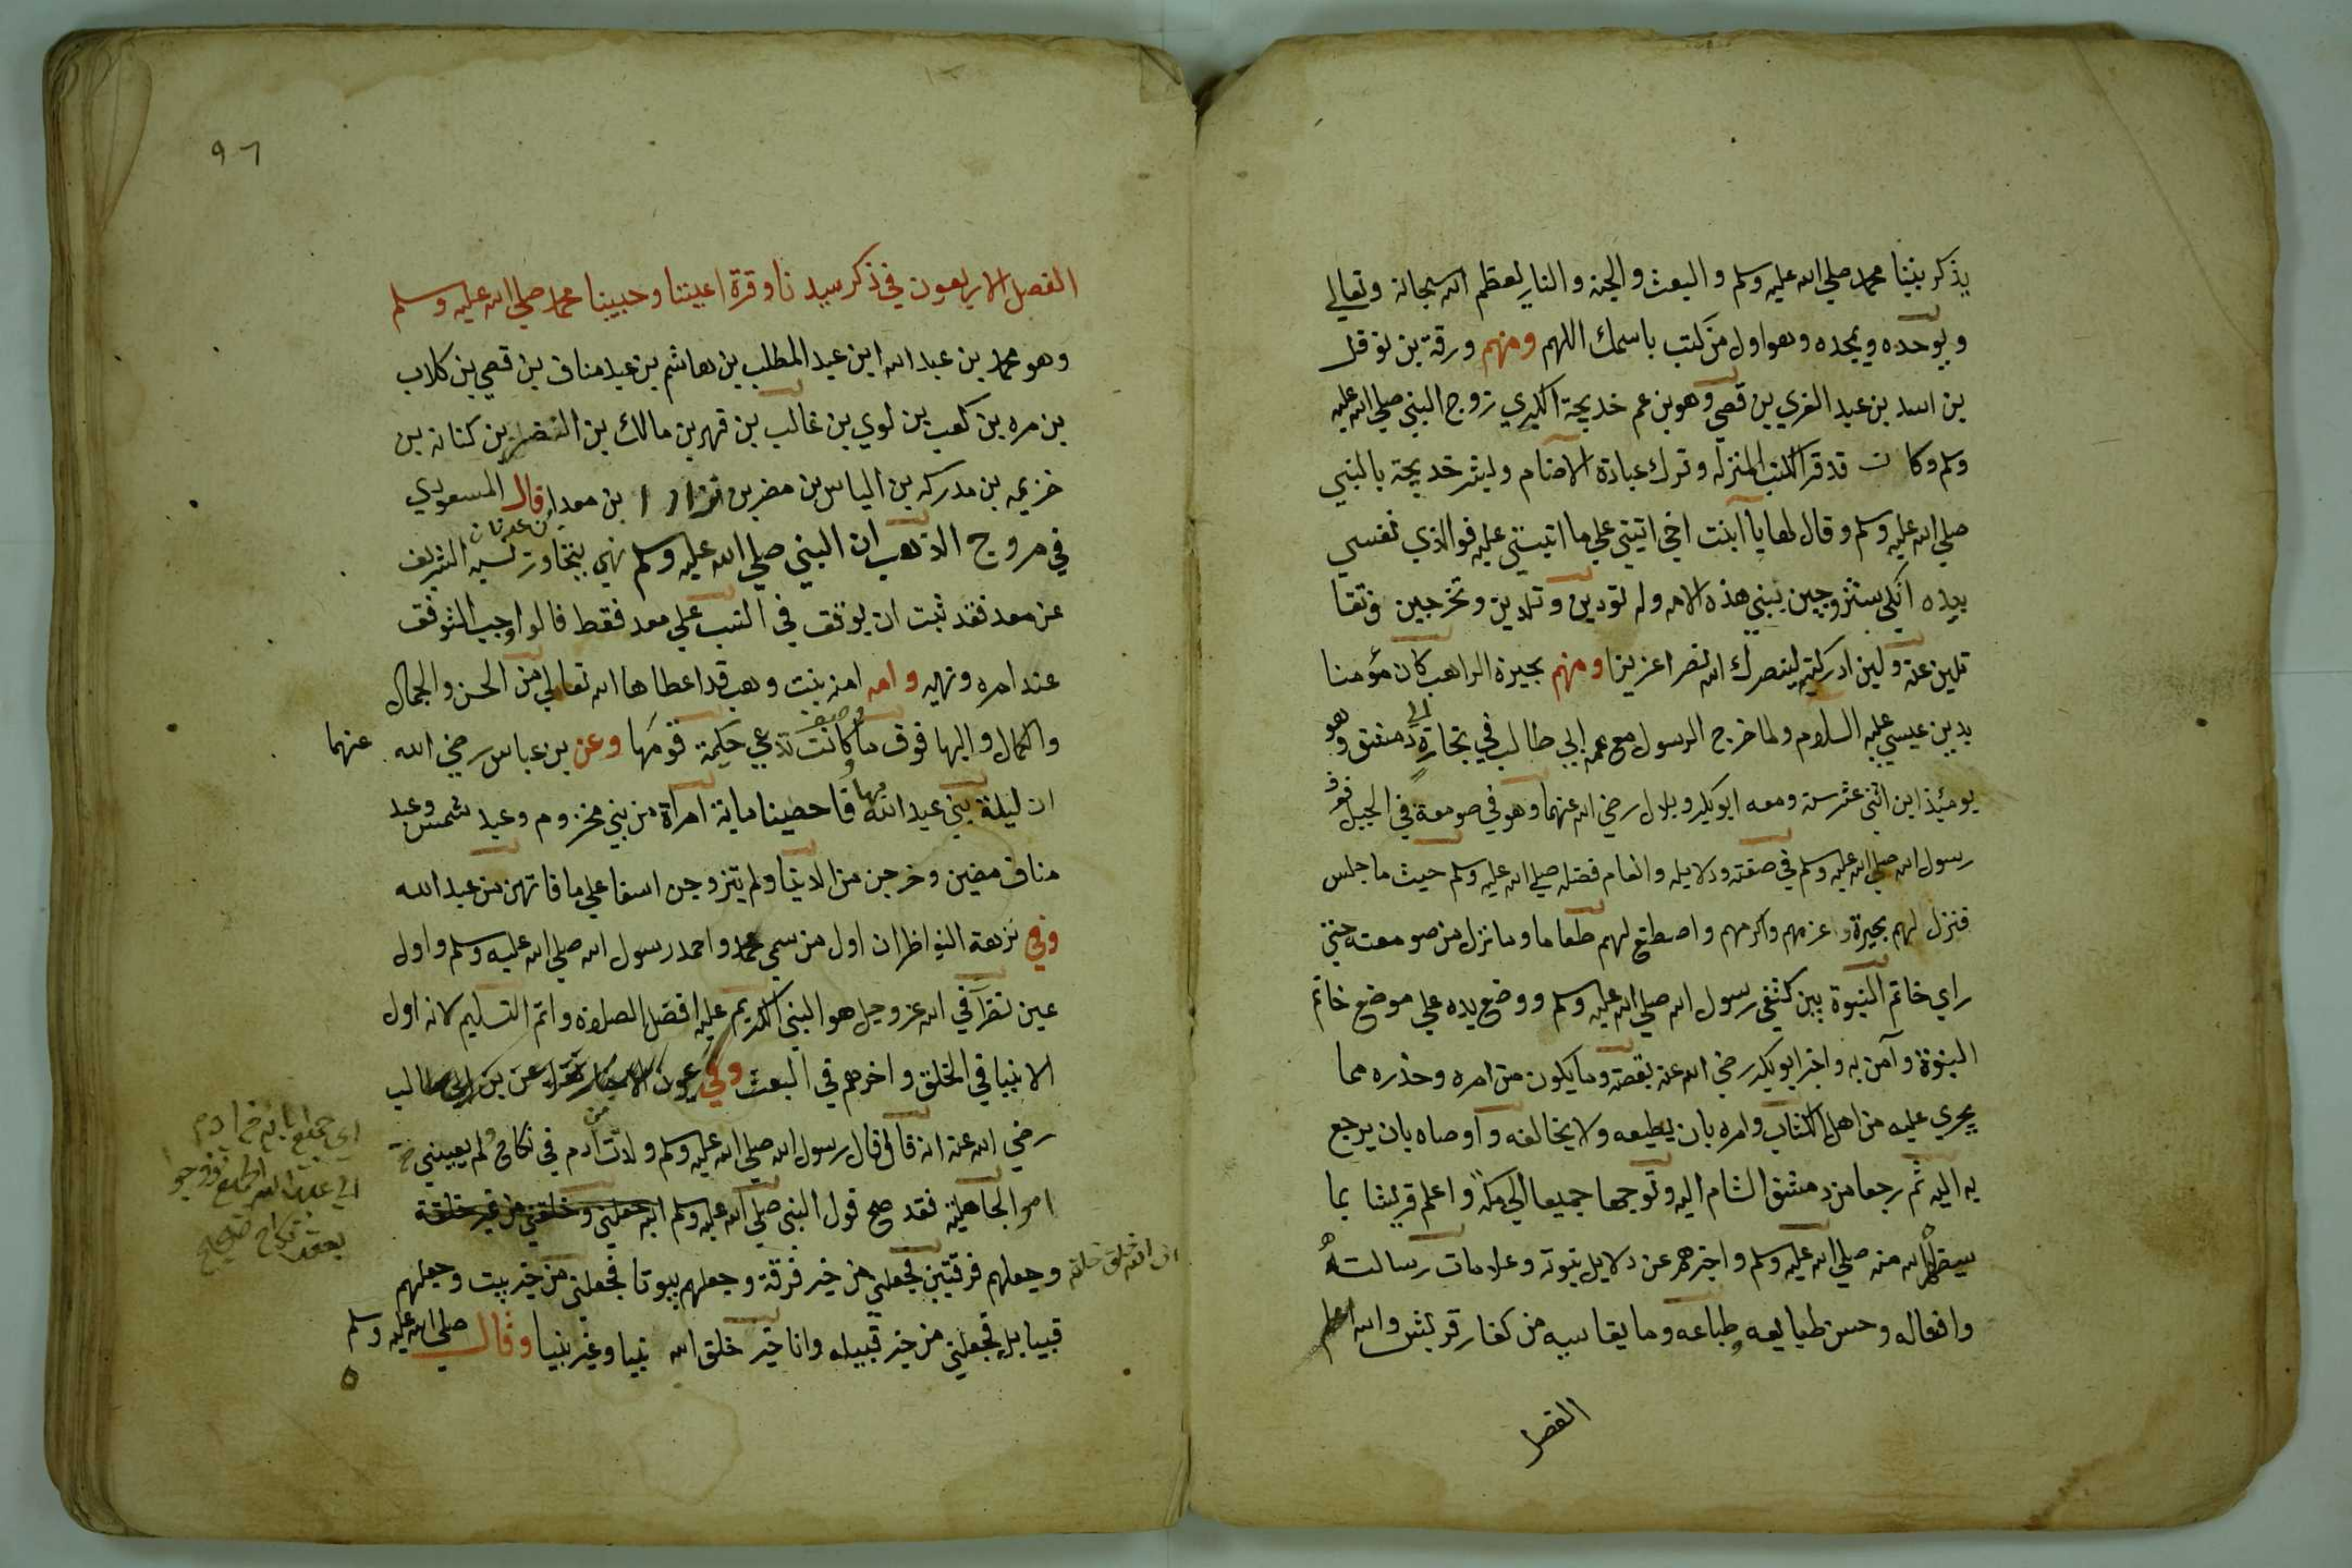 يذكر نبينا محمد صلي الله عليه وسلم والبعث والجنه والنار يعظم الله سبحانه وتعالي
ويوحده ويمجده وهو اول من كتب باسمك اللهم ومنهم ورقة بن نوفل
بن اسد بن عبد العزي بن قصي وهو بن عم خديجة الكبري زوج النبي صلي الله عليه
وسلم وكان قد قرا الكتب المنزله وترك عبادة الاصنام وبشر خديجة بالنبي
صلي الله عليه وسلم وقال لها يا ابنت اخي اثبتي علي ما انتي عليه فوالذي نفسي
بيده انكي ستتزوجين نبي هذه الامه وله تودين وتلدين وتخرجين
عنه ولين ادركته لينصرك الله نصرا عزيزا ومنهم بحيرة الراهب كان مؤمنا
بدين عيسي عليه السلام ولما خرج الرسول مع عمه ابي طالب في تجارة الي دمشق وهو
يومئذ ابن اثني عشر سنة ومعه ابو بكر وبلال رضي الله عنهما وهو في صومعة في الجبل فعرف
رسول الله صلي الله عليه وسلم في صفته ودلايله والغام فضله صلي الله عليه وسلم حيث ما جلس
فنزل لهم بحيرة وعزمهم واكرمهم واصطنع لهم طعاما وما نزل من صومعته حتي
راي خاتم النبوة بين كتفي رسول الله صلي الله عليه وسلم ووضع يده علي موضع خاتم
النبوة وآمن به واخبر ابو بكر رضي الله عنه بقصته وما يكون من امره وحذره مما
يجري عليه من اهل الكتاب وامره بان يطيعه ولا يخالفه واوصاه بان يرجع
به اليه ثم رجعا من دمشق الشام اليه وتوجها جميعا الي مكة واعلم قريشا بما
سيظهر الله منه صلي الله عليه وسلم واخبرهم عن دلايل نبوته وعلامات رسالته
وافعاله وحسن طبايعه وطباعه وما يقاسيه من كفار قريش والله اعلم
الفصل
٩٦
الفصل الاربعون في ذكر سيدنا وقرة اعيننا وحبيبنا محمد صلي الله عليه وسلم
وهو محمد بن عبد الله ابن عبد المطلب بن هاشم بن عبد مناف بن قصي بن كلاب
بن مره بن كعب بن لوي بن غالب بن فهر بن مالك بن النضر بن كنانه بن
خزيمه بن مدركه بن الياس بن مضر بن نزار بن معد بن عدنان قال المسعودي
في مروج الذهب ان النبي صلي الله عليه وسلم نهي بتجاوز نسبه الشريف
عن معد فقد ثبت ان يوقف في النسب علي معد فقط قالوا وجب التوقف
عند امره ونهيه وامه امنه بنت وهب قد اعطاها الله تعالي من الحسن والجمال
والكمال والبها فوق ما كانت تدعي حكيمة قومها وعن بن عباس رضي الله عنهما
ان ليلة بني عبد الله بها احصينا ماية امراة من بني مخزوم وعبد شمس وعبد
مناف مضين وخرجن من الدنيا ولم يتزوجن اسفا علي ما فاتهن من عبد الله
وفي نزهة النواظر ان اول من سمي محمد واحمد رسول الله صلي الله عليه وسلم واول
عين نظر في الله عز وجل هو النبي الكريم عليه افضل الصلاة واتم التسليم لانه اول
الانبيا في الخلق واخرهم في البعث وفي عيون الاخبار عن بن ابي طالب
رضي الله عنه انه قال قال رسول الله صلي الله عليه وسلم ولدت من ادم في نكاح ولم يعيبني
امر الجاهلية فقد صح قول النبي صلي الله عليه وسلم
ان الله خلق خلقه وجعلهم فرقتين فجعلني من خير فرقة وجعلهم بيوتا فجعلني من خير بيت وجعلهم
قبايل فجعلني من خير قبيله وانا خير خلق الله نبيا وغير نبيا وقال صلي الله عليه وسلم
اي جميع
بعقد نكاح صحيح